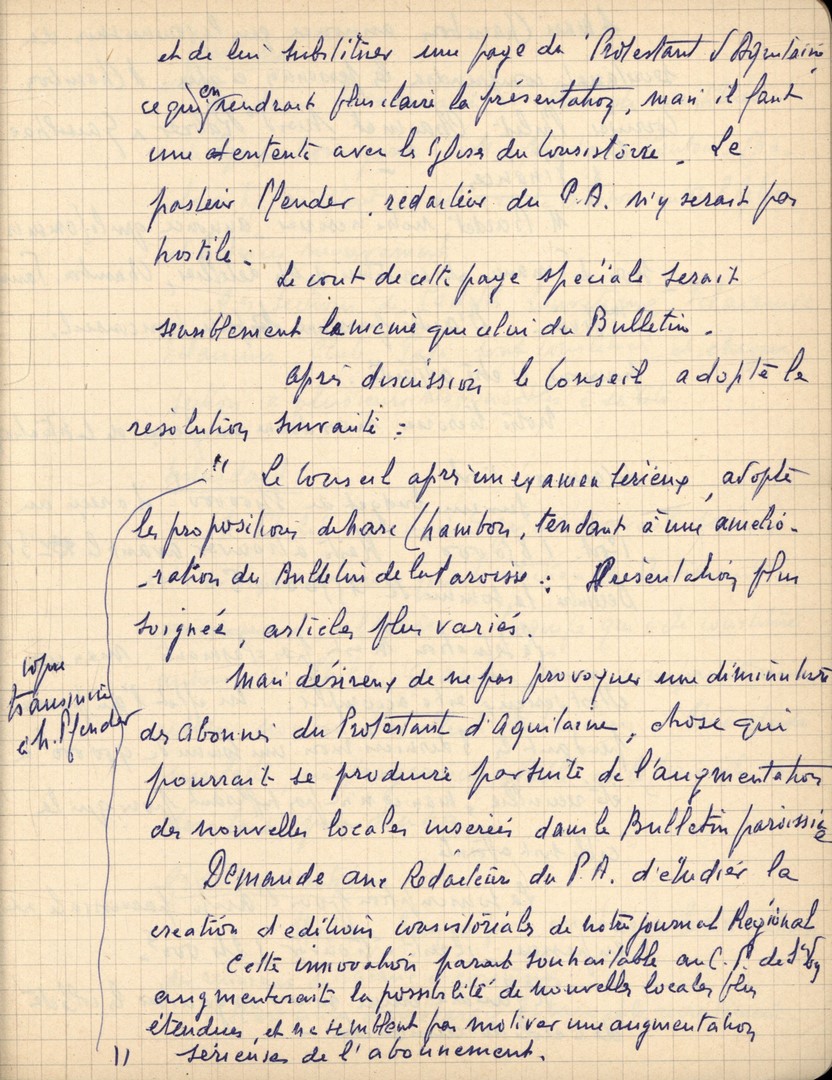 et de lui substituer une page du Protestant d'Aquitaine
ce qui en rendrait plus claire la présentation, mais il faut
une entente avec les Eglises du Consistoire. Le
pasteur Pfender, redacteur du P.A. n'y serait pas
hostile.
Le cout de cette page spéciale serait
sensiblement le meme que celui du Bulletin.
après discussion le Conseil adopte la
résolution suivante :
" Le Conseil après un examen serieux, adopte
les propositions de Chambon, tendant à une amélio-
-ration du Bulletin de la Paroisse : Présentation plus
soignée, articles plus variés.
Mais désireux de ne pas provoquer une diminution
des abonnés du Protestant d'Aquitaine, chose qui
pourrait se produire par suite de l'augmentation
des nouvelles locales inserées dans le Bulletin paroissial
Demande aux Rédacteurs du P.A. d'étudier la
creation d'editions consistoriales de notre journal Régional
Cette innovation parait souhaitable au C.P. de
augmenterait la possibilité de nouvelles locales plus
étendues, et ne semblent pas motiver une augmentation
sérieuses de l'abonnement.
"
copie
transmise
à M. Pfender